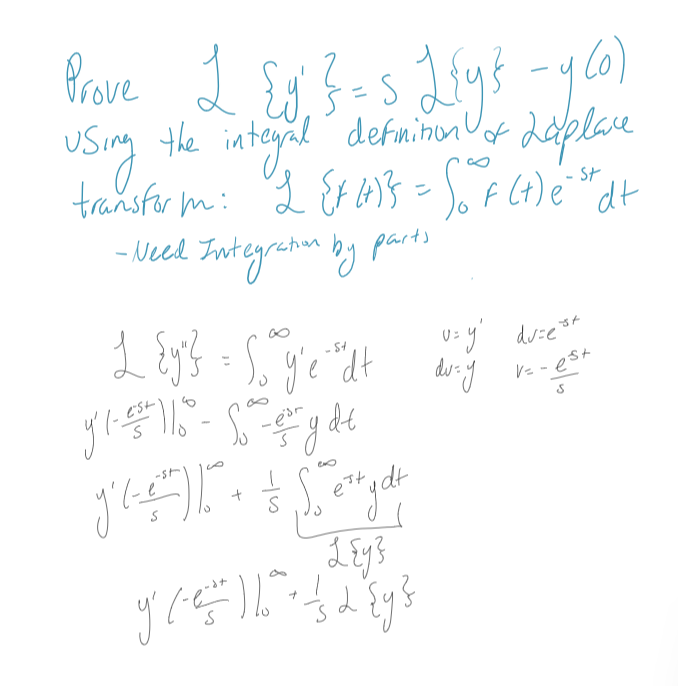 Prove ℒ {y'} = s ℒ{y} - y(0)
using the integral definition of Laplace
transform: ℒ {f(t)} = ∫₀^∞ f(t) e^-st dt
- Need Integration by parts
ℒ {y''} = ∫₀^∞ y' e^-st dt u = y' dv = e^-st
du = y v = - e^-st/s
y' (- e^-st/s) |₀^∞ - ∫₀^∞ - e^-st/s y dt
y' (- e^-st/s) |₀^∞ + 1/s ∫₀^∞ e^-st y dt
ℒ{y}
y' (- e^-st/s) |₀^∞ + 1/s ℒ {y}